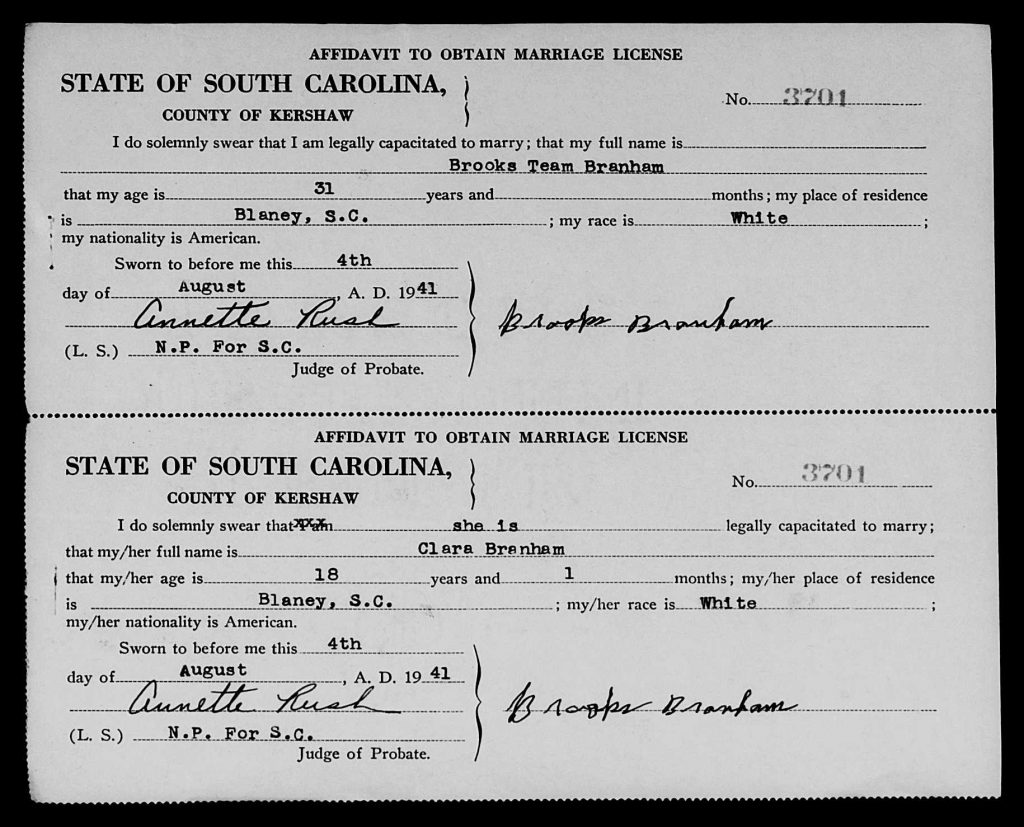 AFFIDAVIT TO OBTAIN MARRIAGE LICENSE
STATE OF SOUTH CAROLINA,
No. 3701
COUNTY OF KERSHAW
I do solemnly swear that I am legally capacitated to marry; that my full name is
Brooks Team Branham
that my age is 31 years and months; my place of residence
is Blaney, S.C. ; my race is White ;
my nationality is American.
Sworn to before me this 4th
day of August, A. D. 1941
Annette Rush Brooks Branham
(L. S.) N.P. For S.C.
Judge of Probate.
AFFIDAVIT TO OBTAIN MARRIAGE LICENSE
STATE OF SOUTH CAROLINA,
No. 3701
COUNTY OF KERSHAW
I do solemnly swear that I am she is legally capacitated to marry;
that my/her full name is Clara Branham
that my/her age is 18 years and 1 months; my/her place of residence
is Blaney, S.C. ; my/her race is White ;
my/her nationality is American.
Sworn to before me this 4th
day of August, A. D. 19 41
Annette Rush Brooks Branham
(L. S.) N.P. For S.C.
Judge of Probate.